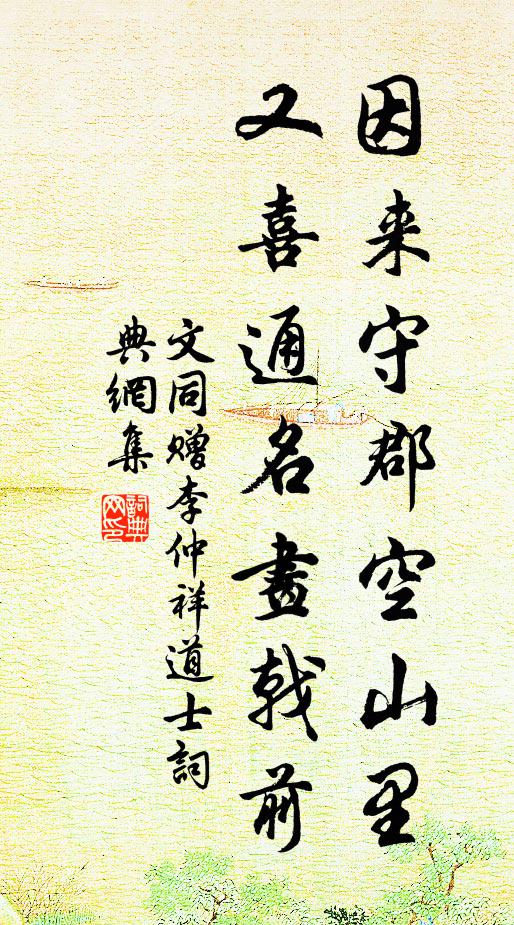 因来守郡空山里
又喜通名畫戟前
文同赠李仲祥道士詞
典網集
詞典網印